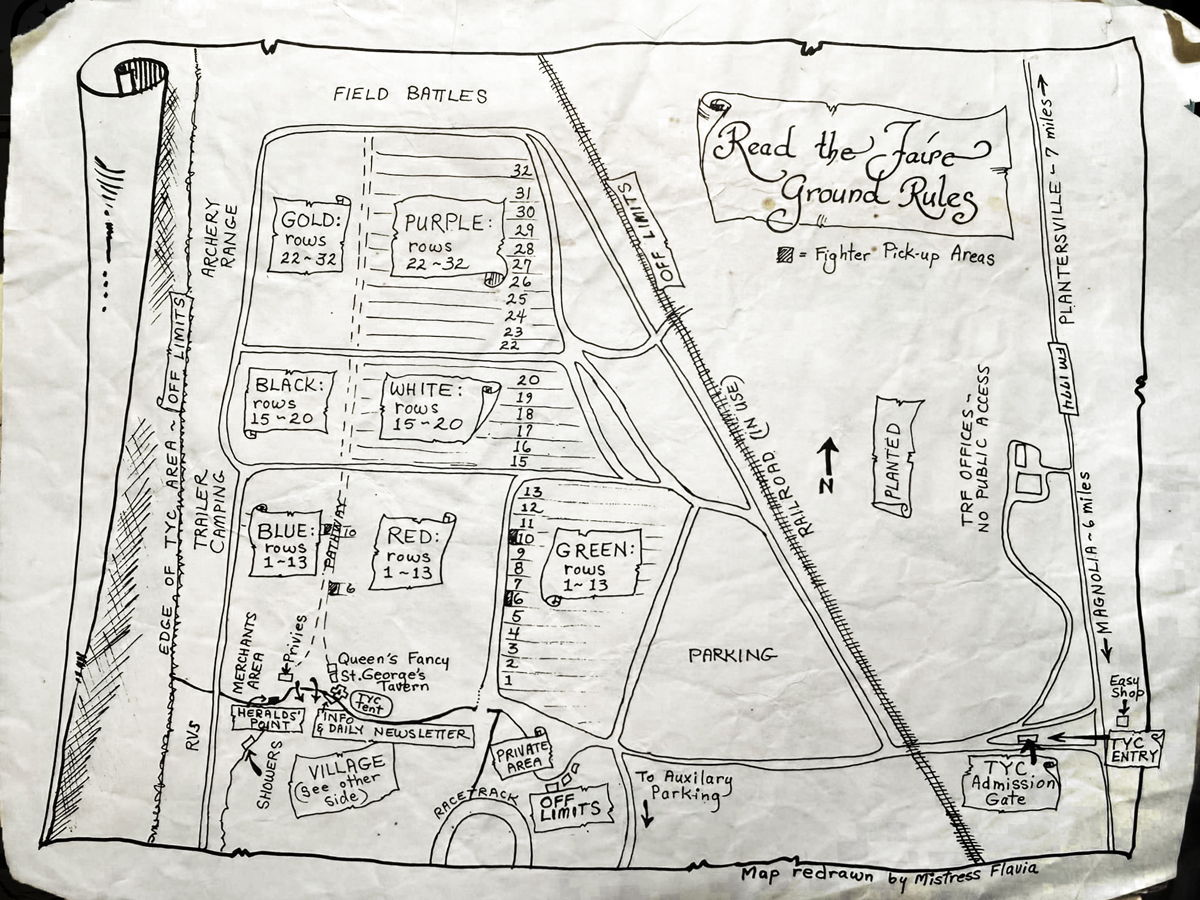 FIELD BATTLES
Read the Faire
Ground Rules
= Fighter Pick-up Areas
PLANTERSVILLE ~ 7 miles
FM 1774
MAGNOLIA ~ 6 miles
OFF LIMITS
RAILROAD (IN USE)
N
PLANTED
TRF OFFICES ~
NO PUBLIC ACCESS
ARCHERY
RANGE
OFF LIMITS
EDGE OF TYC AREA ~
TRAILER
CAMPING
GOLD:
rows
22~32
PURPLE:
rows
22~32
32
31
30
29
28
27
26
25
24
23
22
BLACK:
rows
15~20
WHITE:
rows
15~20
20
19
18
17
16
15
BLUE:
rows
1~13
PATHWAY
10
6
RED:
rows
1~13
13
12
11
10
9
8
7
6
5
4
3
2
1
GREEN:
rows
1~13
PARKING
MERCHANTS
AREA
Privies
Queen's Fancy
St. George's
Tavern
TYC
tent
HERALDS'
POINT
INFO
& DAILY NEWSLETTER
RVS
SHOWERS
VILLAGE
(see other
side)
PRIVATE
AREA
RACETRACK
OFF
LIMITS
To Auxilary
Parking
Easy
Shop
TYC
ENTRY
TYC
Admission
Gate
Map redrawn by Mistress Flavia